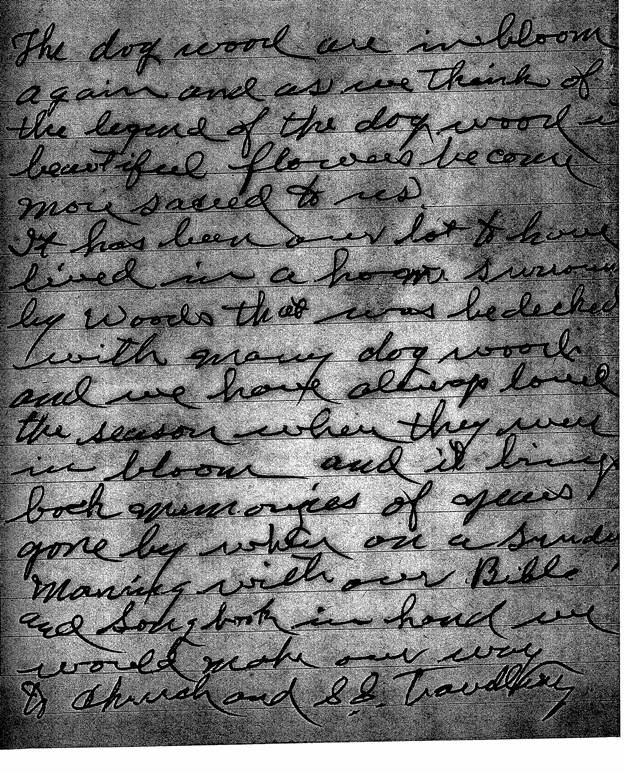 The dog wood are in bloom
again and as we think of
the legend of the dog wood
beautiful flowers become
more sacred to us.
It has been our lot to have
lived in a home
by woods that was bedecked
with many dog wood
and we have always loved
the season when they were
in bloom and it brings
back memories of years
gone by when on a
Morning with our Bible
and Song book in hand we
would make our way
to Church and S.S.